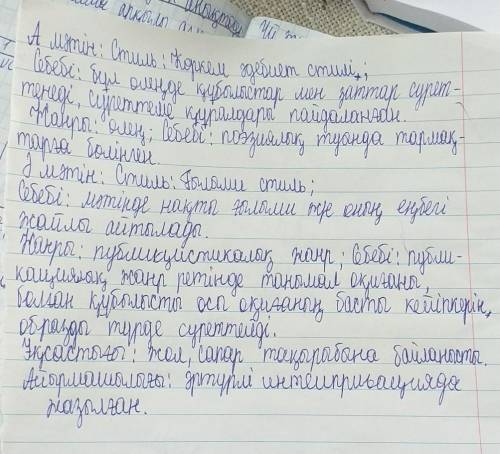 А мәтін: Стиль: Көркем әдебиет стилі;
Себебі: бұл өлеңде құбылыстар мен заттар сурет-
теледі, суреттеме құралдары пайдаланған.
Жанры: өлең; Себебі: поэзиялық туында тармақ-
тарға бөлінген.
Ә мәтін: Стиль: Ғылыми стиль;
Себебі: мәтінде нақты ғылыми және оның еңбегі
жайлы айтылады.
Жанры: публицистикалық жанр; Себебі: публи-
кациялық жанр ретінде танымал оқиғаны,
болған құбылысты осы оқиғаның басты кейіпкерін,
образды түрде суреттейді.
Ұқсастығы: жол, сапар тақырыбына байланысты.
Айырмашылығы: әртүрлі интенпривацияда
жазылған.